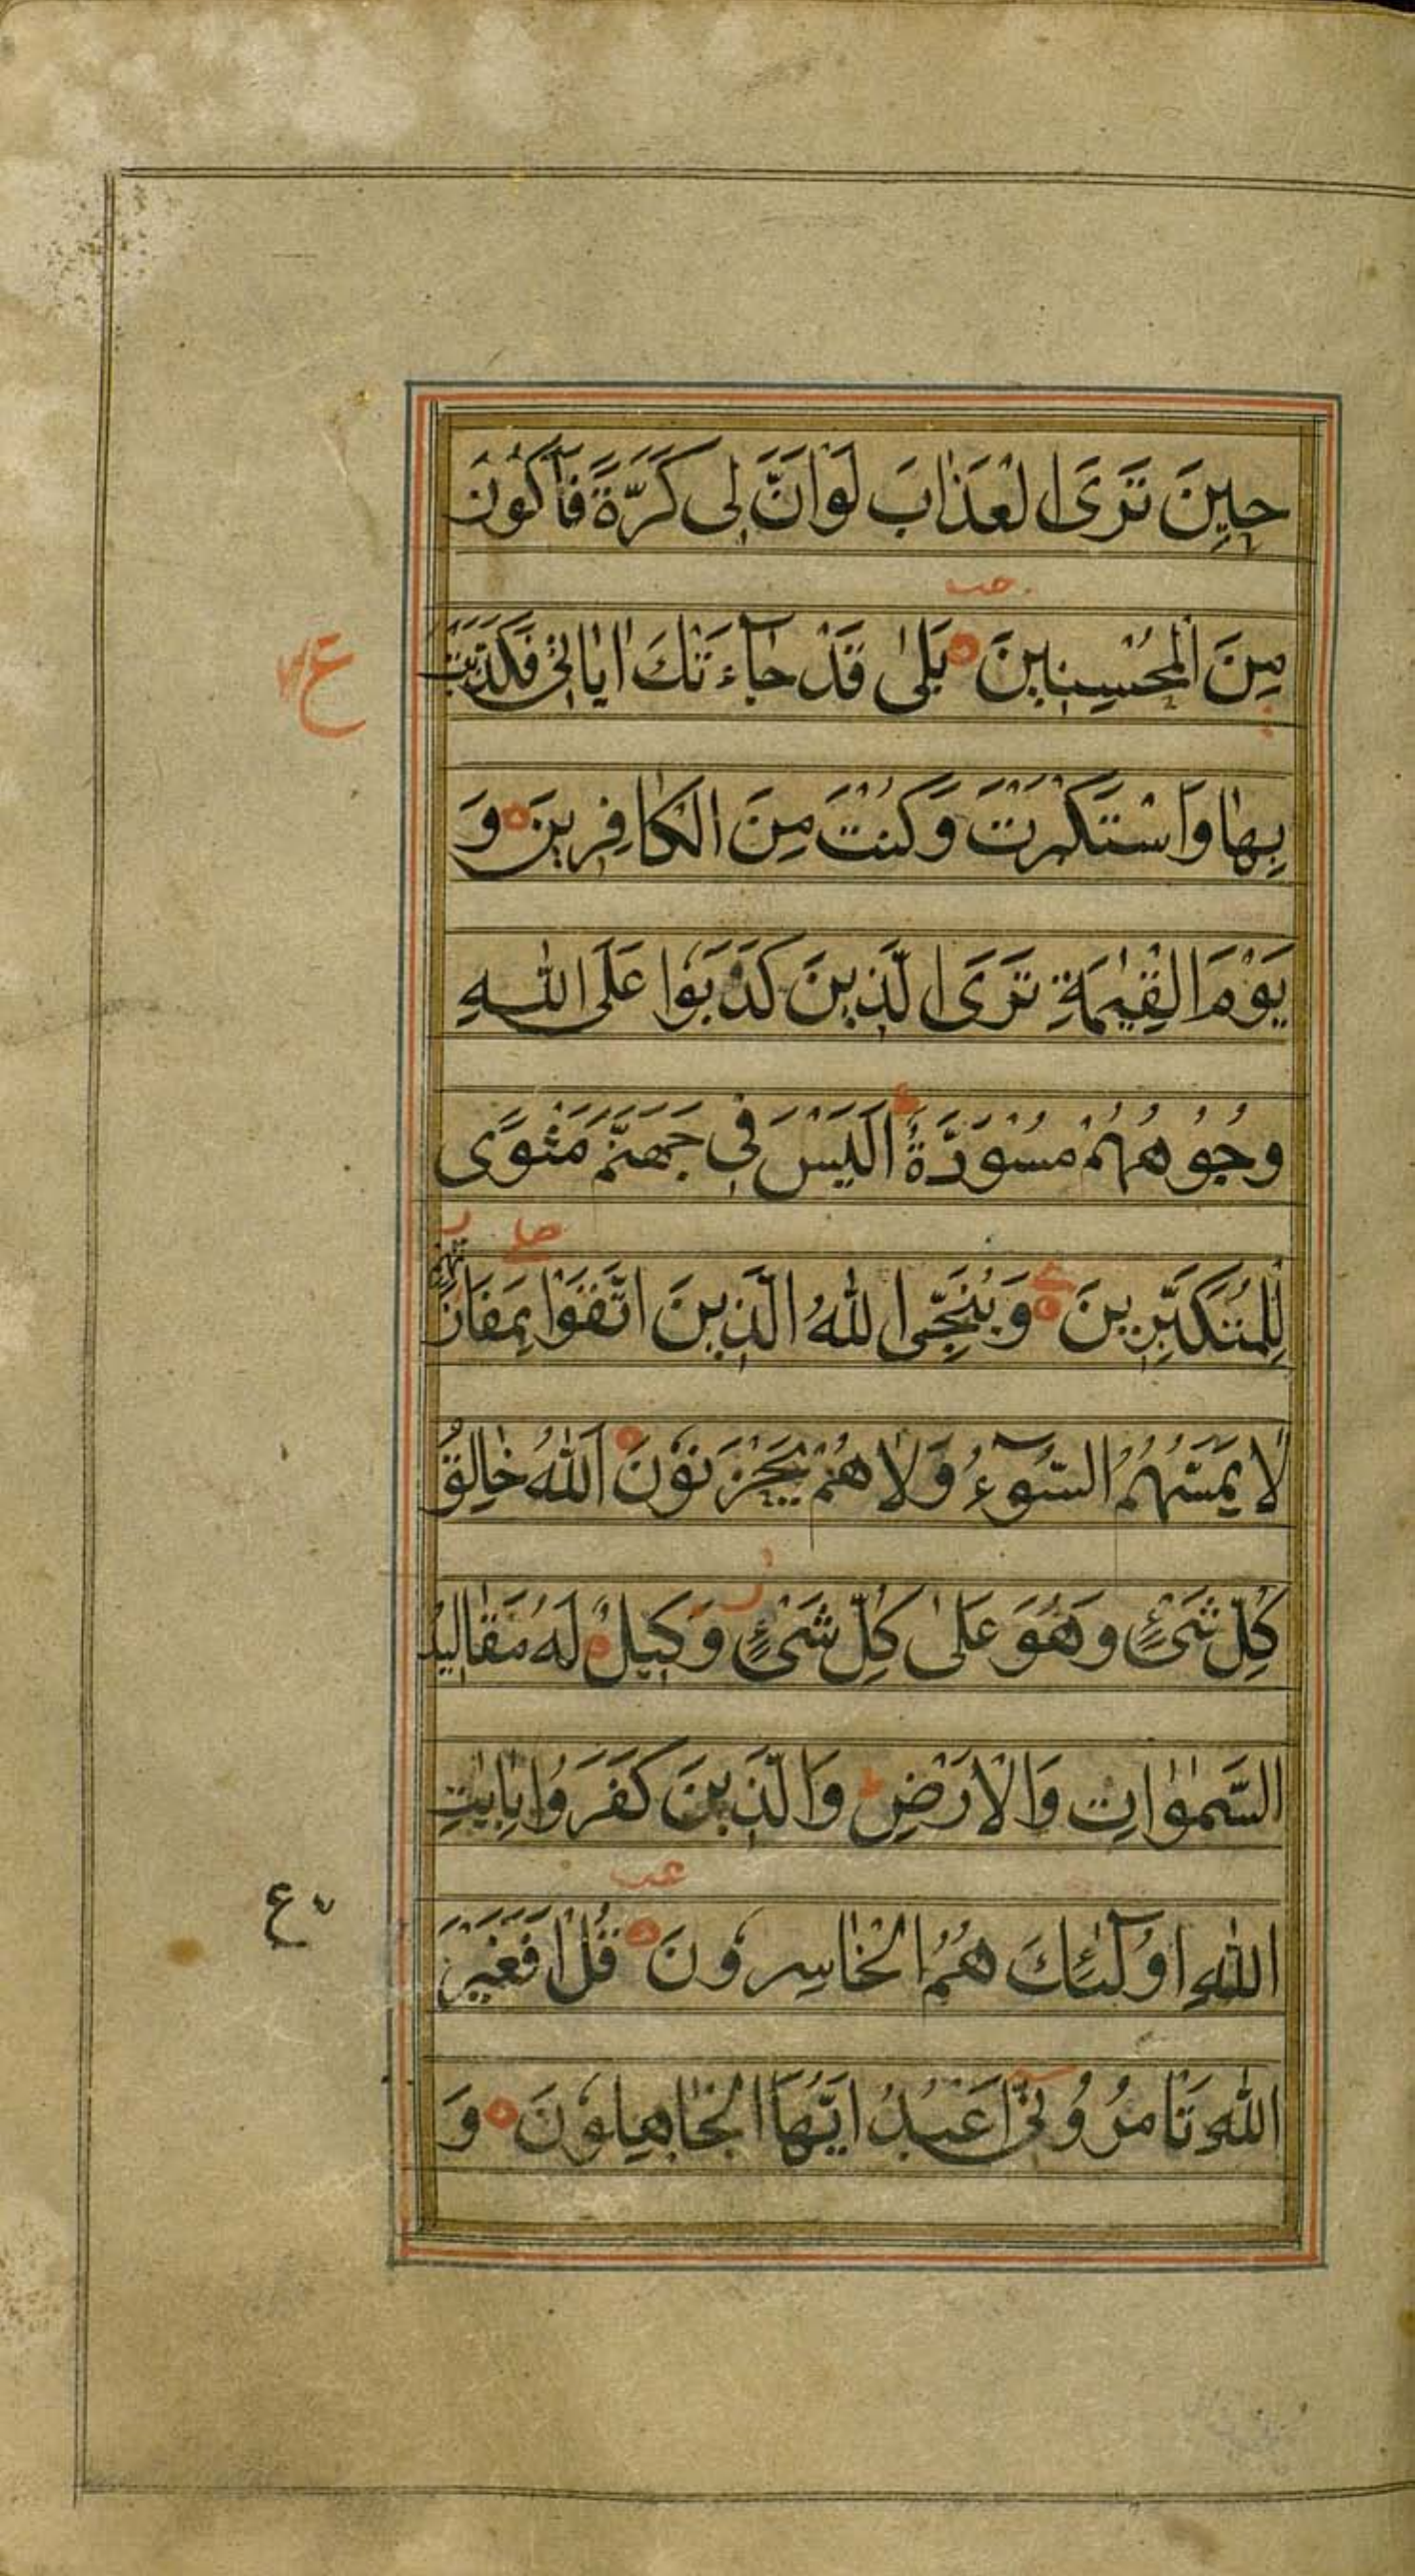 حِينَ تَرَى الْعَذَابَ لَوْ اَنَّ لِى كَرَّةً فَاَكُونَ
مِنَ الْمُحْسِنِينَ بَلٰى قَدْ جَآءَتْكَ اٰيَاتِى فَكَذَّبْتَ
بِهَا وَاسْتَكْبَرْتَ وَكُنْتَ مِنَ الْكَافِرِينَ وَ
يَوْمَ الْقِيٰمَةِ تَرَى الَّذِينَ كَذَبُوا عَلَى اللّٰهِ
وُجُوهُهُمْ مُسْوَدَّةٌ اَلَيْسَ فِى جَهَنَّمَ مَثْوًى
لِلْمُتَكَبِّرِينَ وَيُنَجِّى اللّٰهُ الَّذِينَ اتَّقَوْا بِمَفَازَتِهِمْ
لَا يَمَسُّهُمُ السُّوٓءُ وَلَا هُمْ يَحْزَنُونَ اَللّٰهُ خَالِقُ
كُلِّ شَىْءٍ وَهُوَ عَلٰى كُلِّ شَىْءٍ وَكِيلٌ لَهُ مَقَالِيدُ
السَّمٰوَاتِ وَالْاَرْضِ وَالَّذِينَ كَفَرُوا بِاٰيٰتِ
اللّٰهِ اُولٰٓئِكَ هُمُ الْخَاسِرُونَ قُلْ اَفَغَيْرَ
اللّٰهِ تَاْمُرُونِّىٓ اَعْبُدُ اَيُّهَا الْجَاهِلُونَ وَ
ع
ع